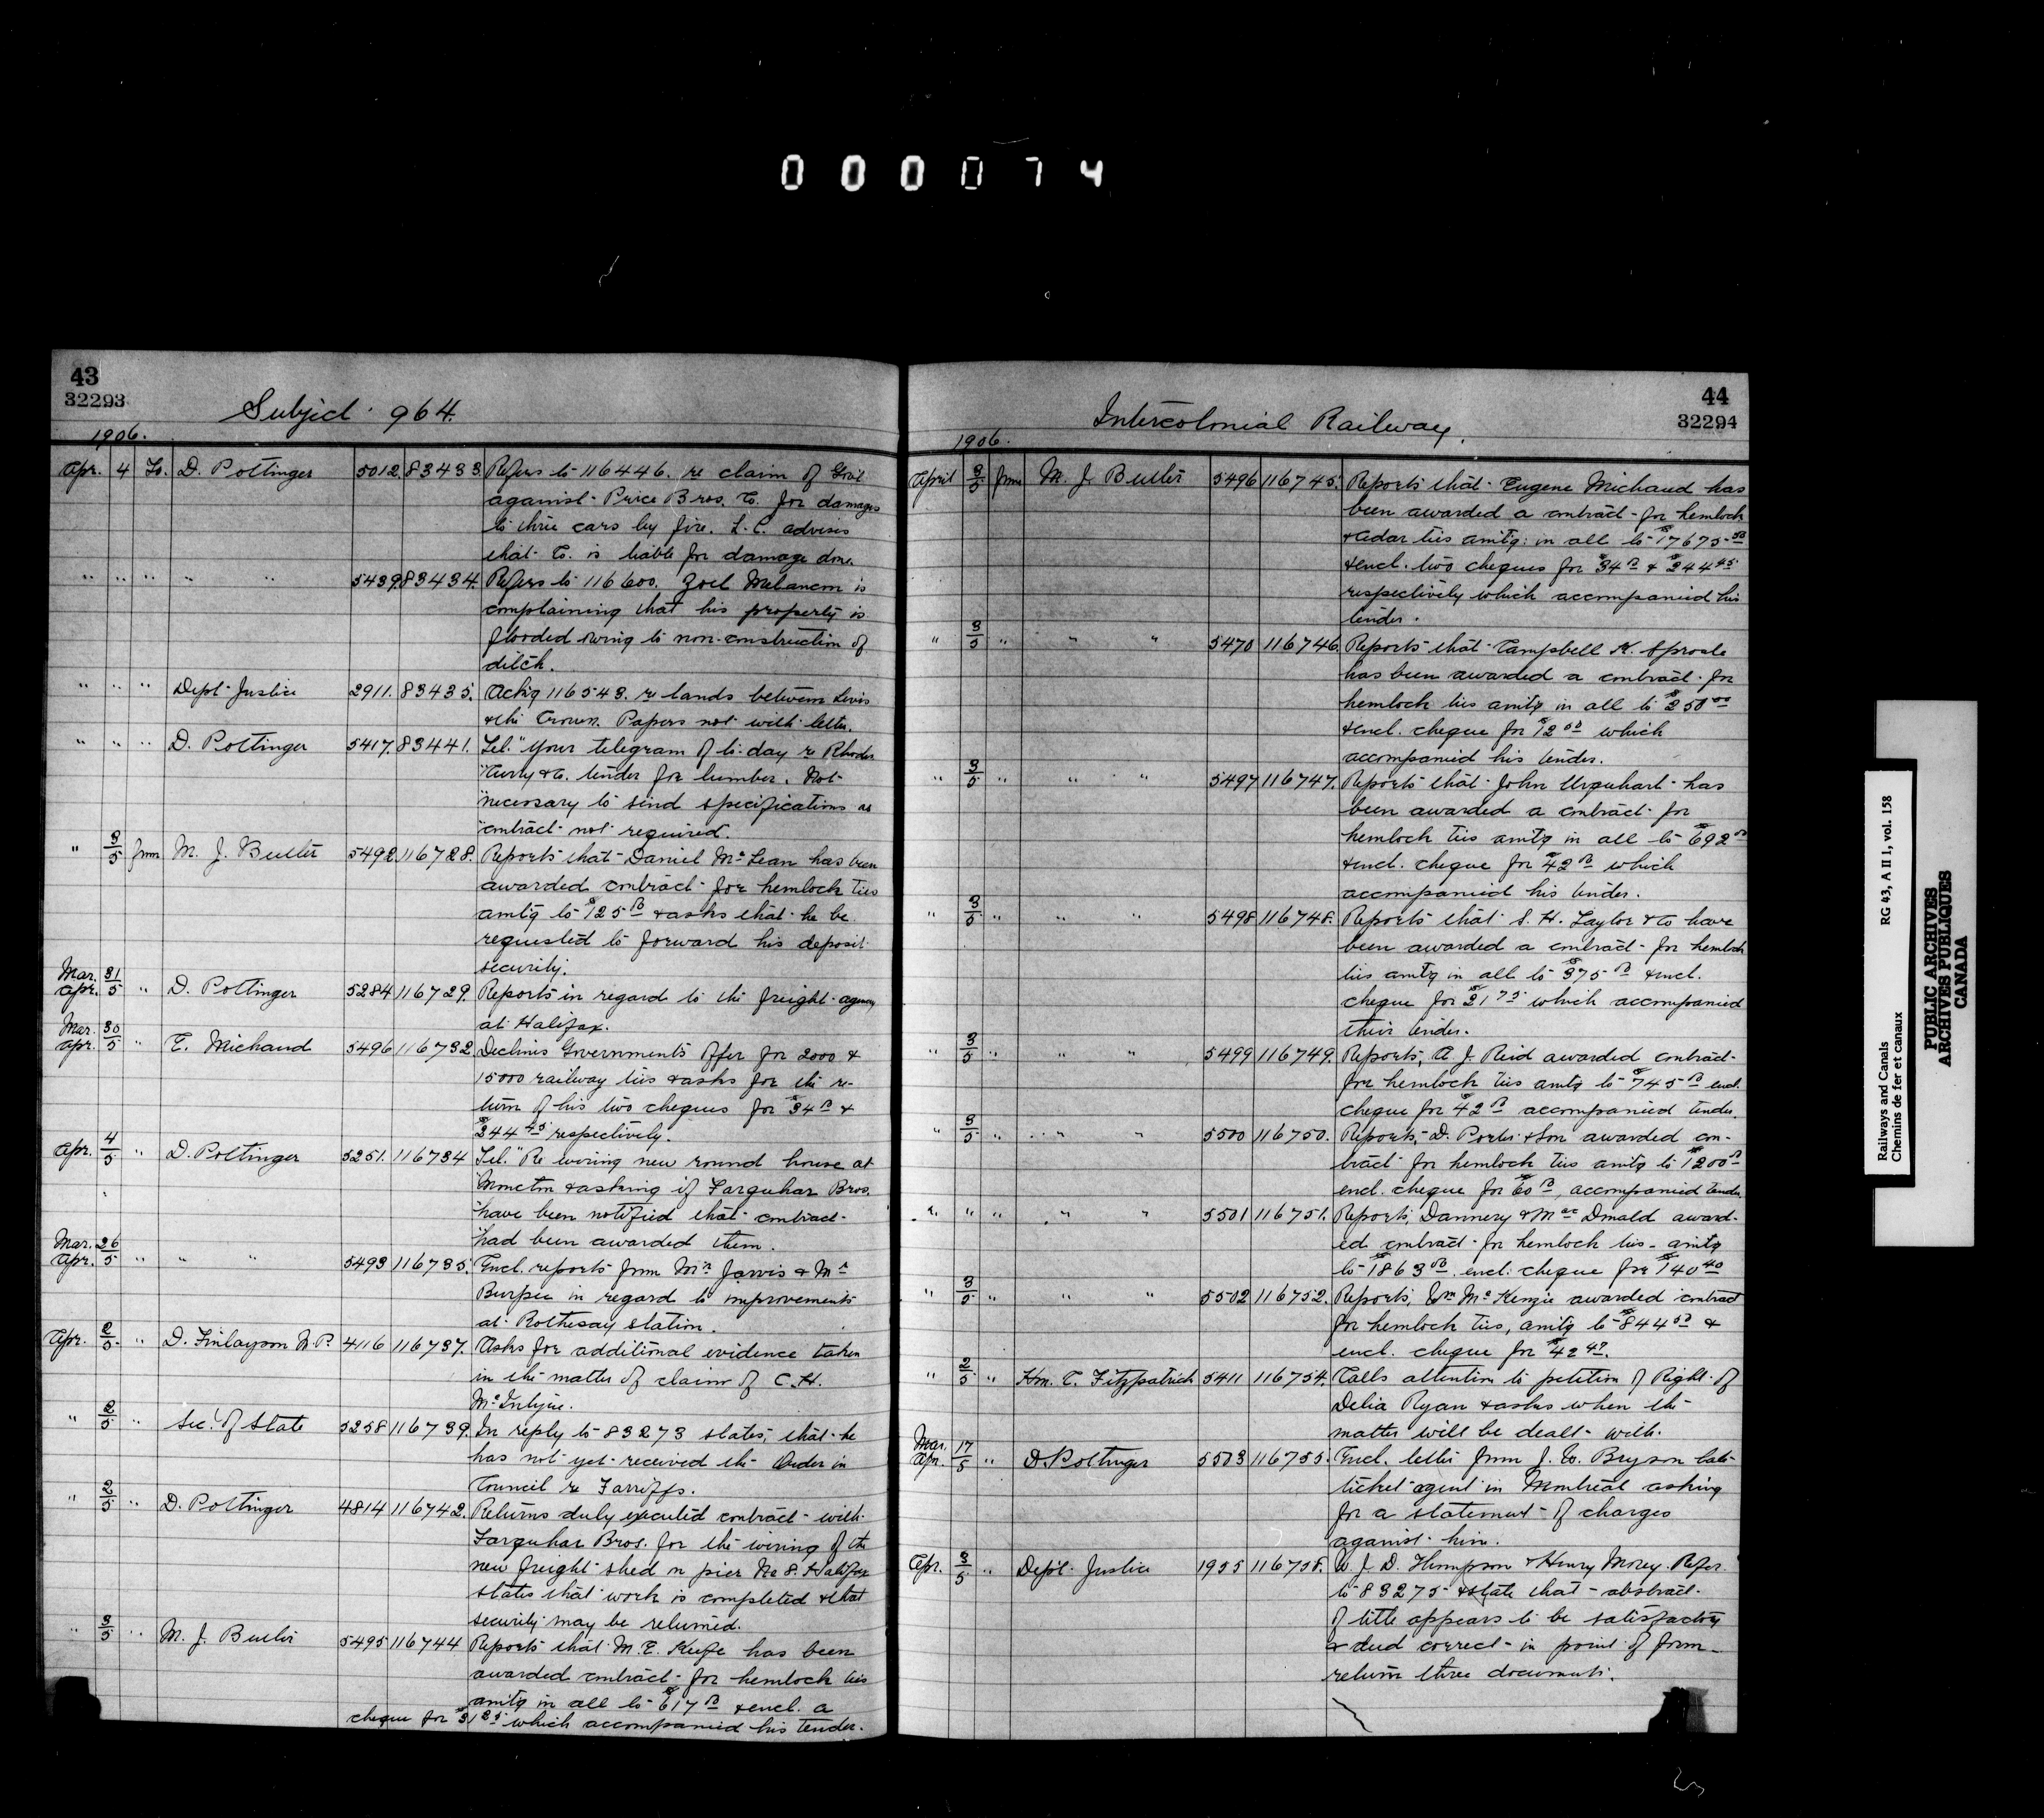 000074
43
32293
Subject 964.
1906.
Apr. 4 To. D. Pottinger 5012. 83433. Refers to 116446. re claim of Govt
against Price Bros. Co. for damages
to three cars by fire. L.C. advises
that Co. is liable for damage done.
" " " " " 5439. 83434. Refers to 116600. Zoel Melancon is
complaining that his property is
flooded owing to non-construction of
ditch.
" " " Dept Justice 2911. 83435. Ackg 116543. re lands between Levis
& the Crown. Papers not with letter.
" " " D. Pottinger 5417. 83441. Tel. "Your telegram of to-day re Rhodes
"Curry & Co. tender for lumber. Not
"necessary to send specifications as
"contract not required.
" 3/5 from M. J. Butler 5492 116728. Reports that Daniel McLean has been
awarded contract for hemlock ties
amtg to $125 00 & asks that he be
requested to forward his deposit
security.
Mar. 31
Apr. 5 " D. Pottinger 5284 116729. Reports in regard to the freight agency
at Halifax.
Mar. 30
Apr. 5 " E. Michaud 5496 116732. Declines Governments offer for 2000 &
15000 railway ties & asks for the re-
turn of his two cheques for $34 00 &
$244 45 respectively.
Apr. 4/5 " D. Pottinger 5251. 116734 Tel. "Re wiring new round house at
"Moncton & asking if Farquhar Bros.
"have been notified that contract
"had been awarded them.
Mar. 26
Apr. 5 " " " 5493 116735. Encl. reports from Mr Jarvis & Mr
Burpee in regard to improvements
at Rothesay station.
Apr. 2/5 " D. Finlayson M.P. 4116 116737. Asks for additional evidence taken
in the matter of claim of C.H.
McIntyre.
" 2/5 " Sec. of State 5258 116739. In reply to 83273 states, that he
has not yet received the Order in
Council re Tarriffs.
" 2/5 " D. Pottinger 4814 116742. Returns duly executed contract with
Farquhar Bros. for the wiring of the
new freight shed on pier No 8. Halifax
states that work is completed & that
security may be returned.
" 3/5 " M. J. Butler 5495 116744 Reports that M. E. Keefe has been
awarded contract for hemlock ties
amtg in all to $617 00 & encl. a
cheque for $31 25 which accompanied his tender.
44
32294
Intercolonial Railway.
1906.
April 3/5 from M. J. Butler 5496 116745. Reports that Eugene Michaud has
been awarded a contract for hemlock
& cedar ties amtg: in all to $17675 00
& encl. two cheques for $34 00 & $244 45
respectively which accompanied his
tender.
" 3/5 " " " 5470 116746. Reports that Campbell K. Sproule
has been awarded a contract for
hemlock ties amtg in all to $250 00
& encl. cheque for $12 50 which
accompanied his tender.
" 3/5 " " " 5497 116747. Reports that John Urquhart has
been awarded a contract for
hemlock ties amtg in all to $692 00
& encl. cheque for $42 00 which
accompanied his tender.
" 3/5 " " " 5498 116748. Reports that S. H. Taylor & Co have
been awarded a contract for hemlock
ties amtg in all to $375 00 & encl.
cheque for $21 75 which accompanied
their tender.
" 3/5 " " " 5499 116749. Reports, A J. Reid awarded contract
for hemlock ties amtg to $745 00 encl.
cheque for $42 00 accompanied tender.
" 3/5 " " " 5500 116750. Reports, D. Porter & Son awarded con-
tract for hemlock ties amtg to $1200 00
encl. cheque for $60 00, accompanied tender.
" " " " " 5501 116751. Reports, Dannery & MacDonald award-
ed contract for hemlock ties amtg
to $1863 00. encl. cheque for $140 40
" 3/5 " " " 5502 116752. Reports, Wm McKenzie awarded contract
for hemlock ties, amtg to $844 50 &
encl. cheque for $42 47.
" 2/5 " Hon. C. Fitzpatrick 5411 116754. Calls attention to petition of Right of
Delia Ryan & asks when the
matter will be dealt with.
Mar. 17
Apr. 5 " D. Pottinger 5503 116755. Encl. letter from J. W. Bryson late
ticket agent in Montreal asking
for a statement of charges
against him.
Apr. 3/5 " Dept. Justice 1955 116758. W. J. D. Thompson & Henry Morey. Refer
to 83275 & state that abstract
of title appears to be satisfactory
& deed correct in point of form
return three documents.
Railways and Canals RG 43, A II 1, vol. 158
Chemins de fer et canaux
PUBLIC ARCHIVES
ARCHIVES PUBLIQUES
CANADA